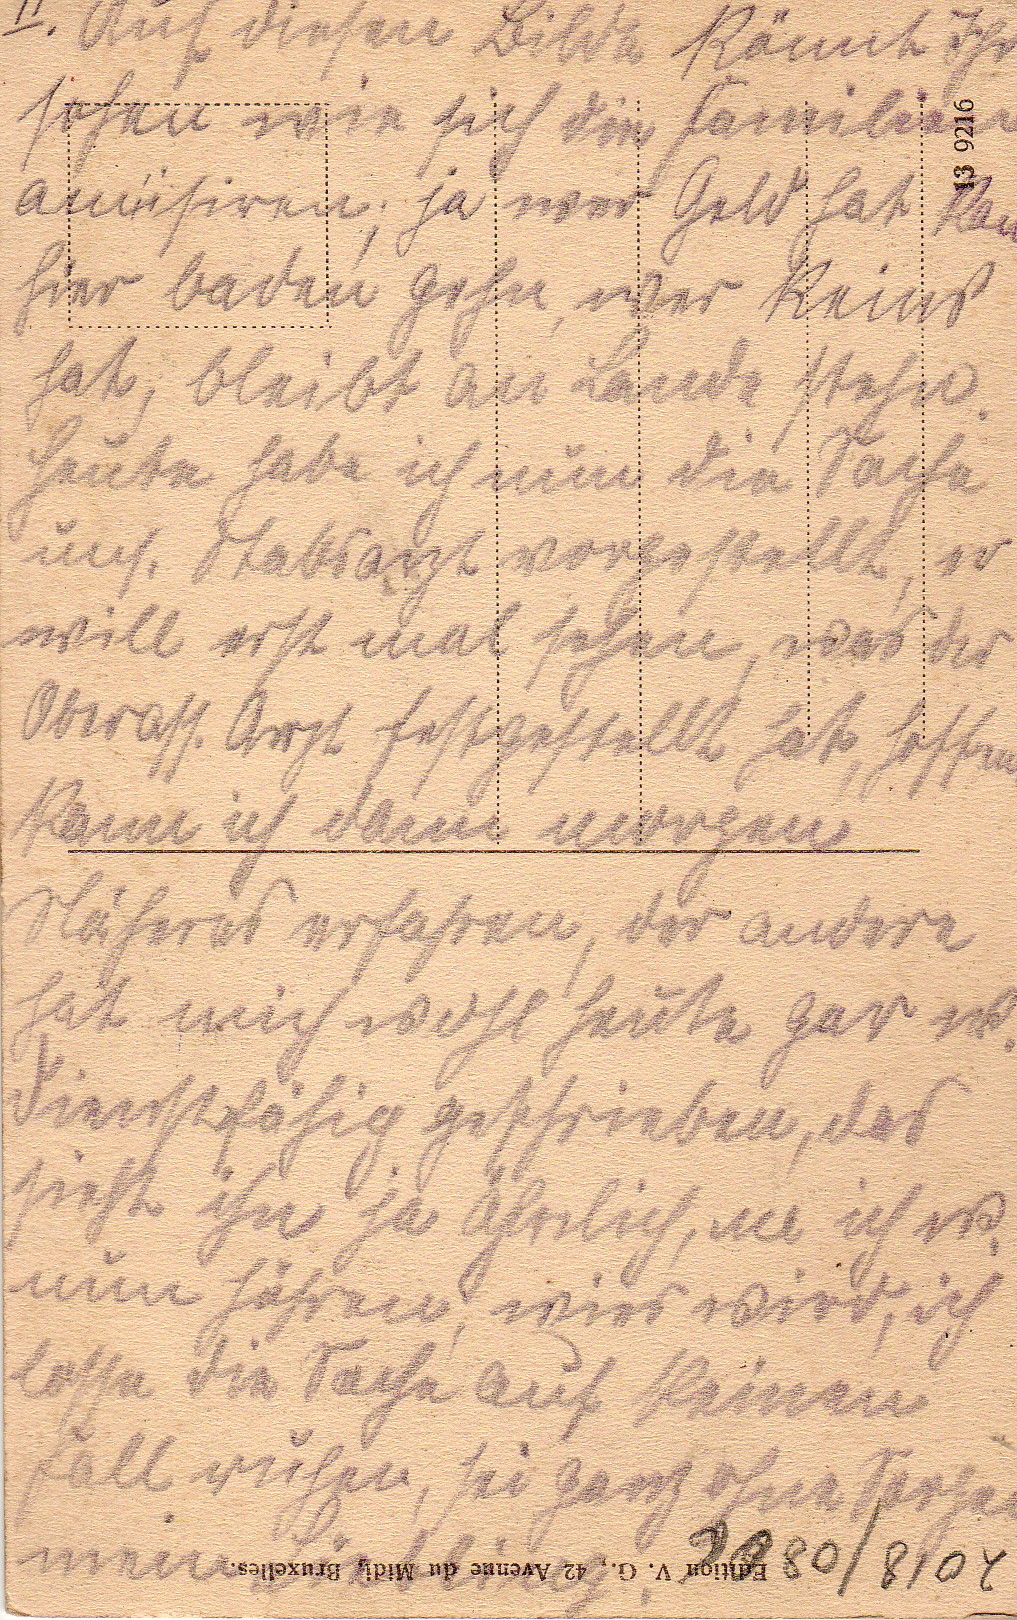 II. Auf diesen Bilde könnt Ihr
sehen wie sich die Familien
amüsiren, ja wer Geld hat kan
hier baden gehn, wer keins
hat, bleibt an Lande stehn.
Heute habe ich nun die Sache
uns. Stabsarzt vorgestellt, er
will erst mal sehen, was der
Oberass. Arzt festgestellt hat, hoffen
kann ich dann morgen
Näheres erfahren, der andere
hat mich wohl heute gar
dienstfähig geschrieben, das
sieht ihn ja ähnlich, ich
nun hören, wies wird, ich
lasse die Sache auf keinen
Fall ruhen, sei ganz ohne Sorgen
mein Liebling.
13 9216
Edition V. G., 42 Avenue du Midi, Bruxelles.